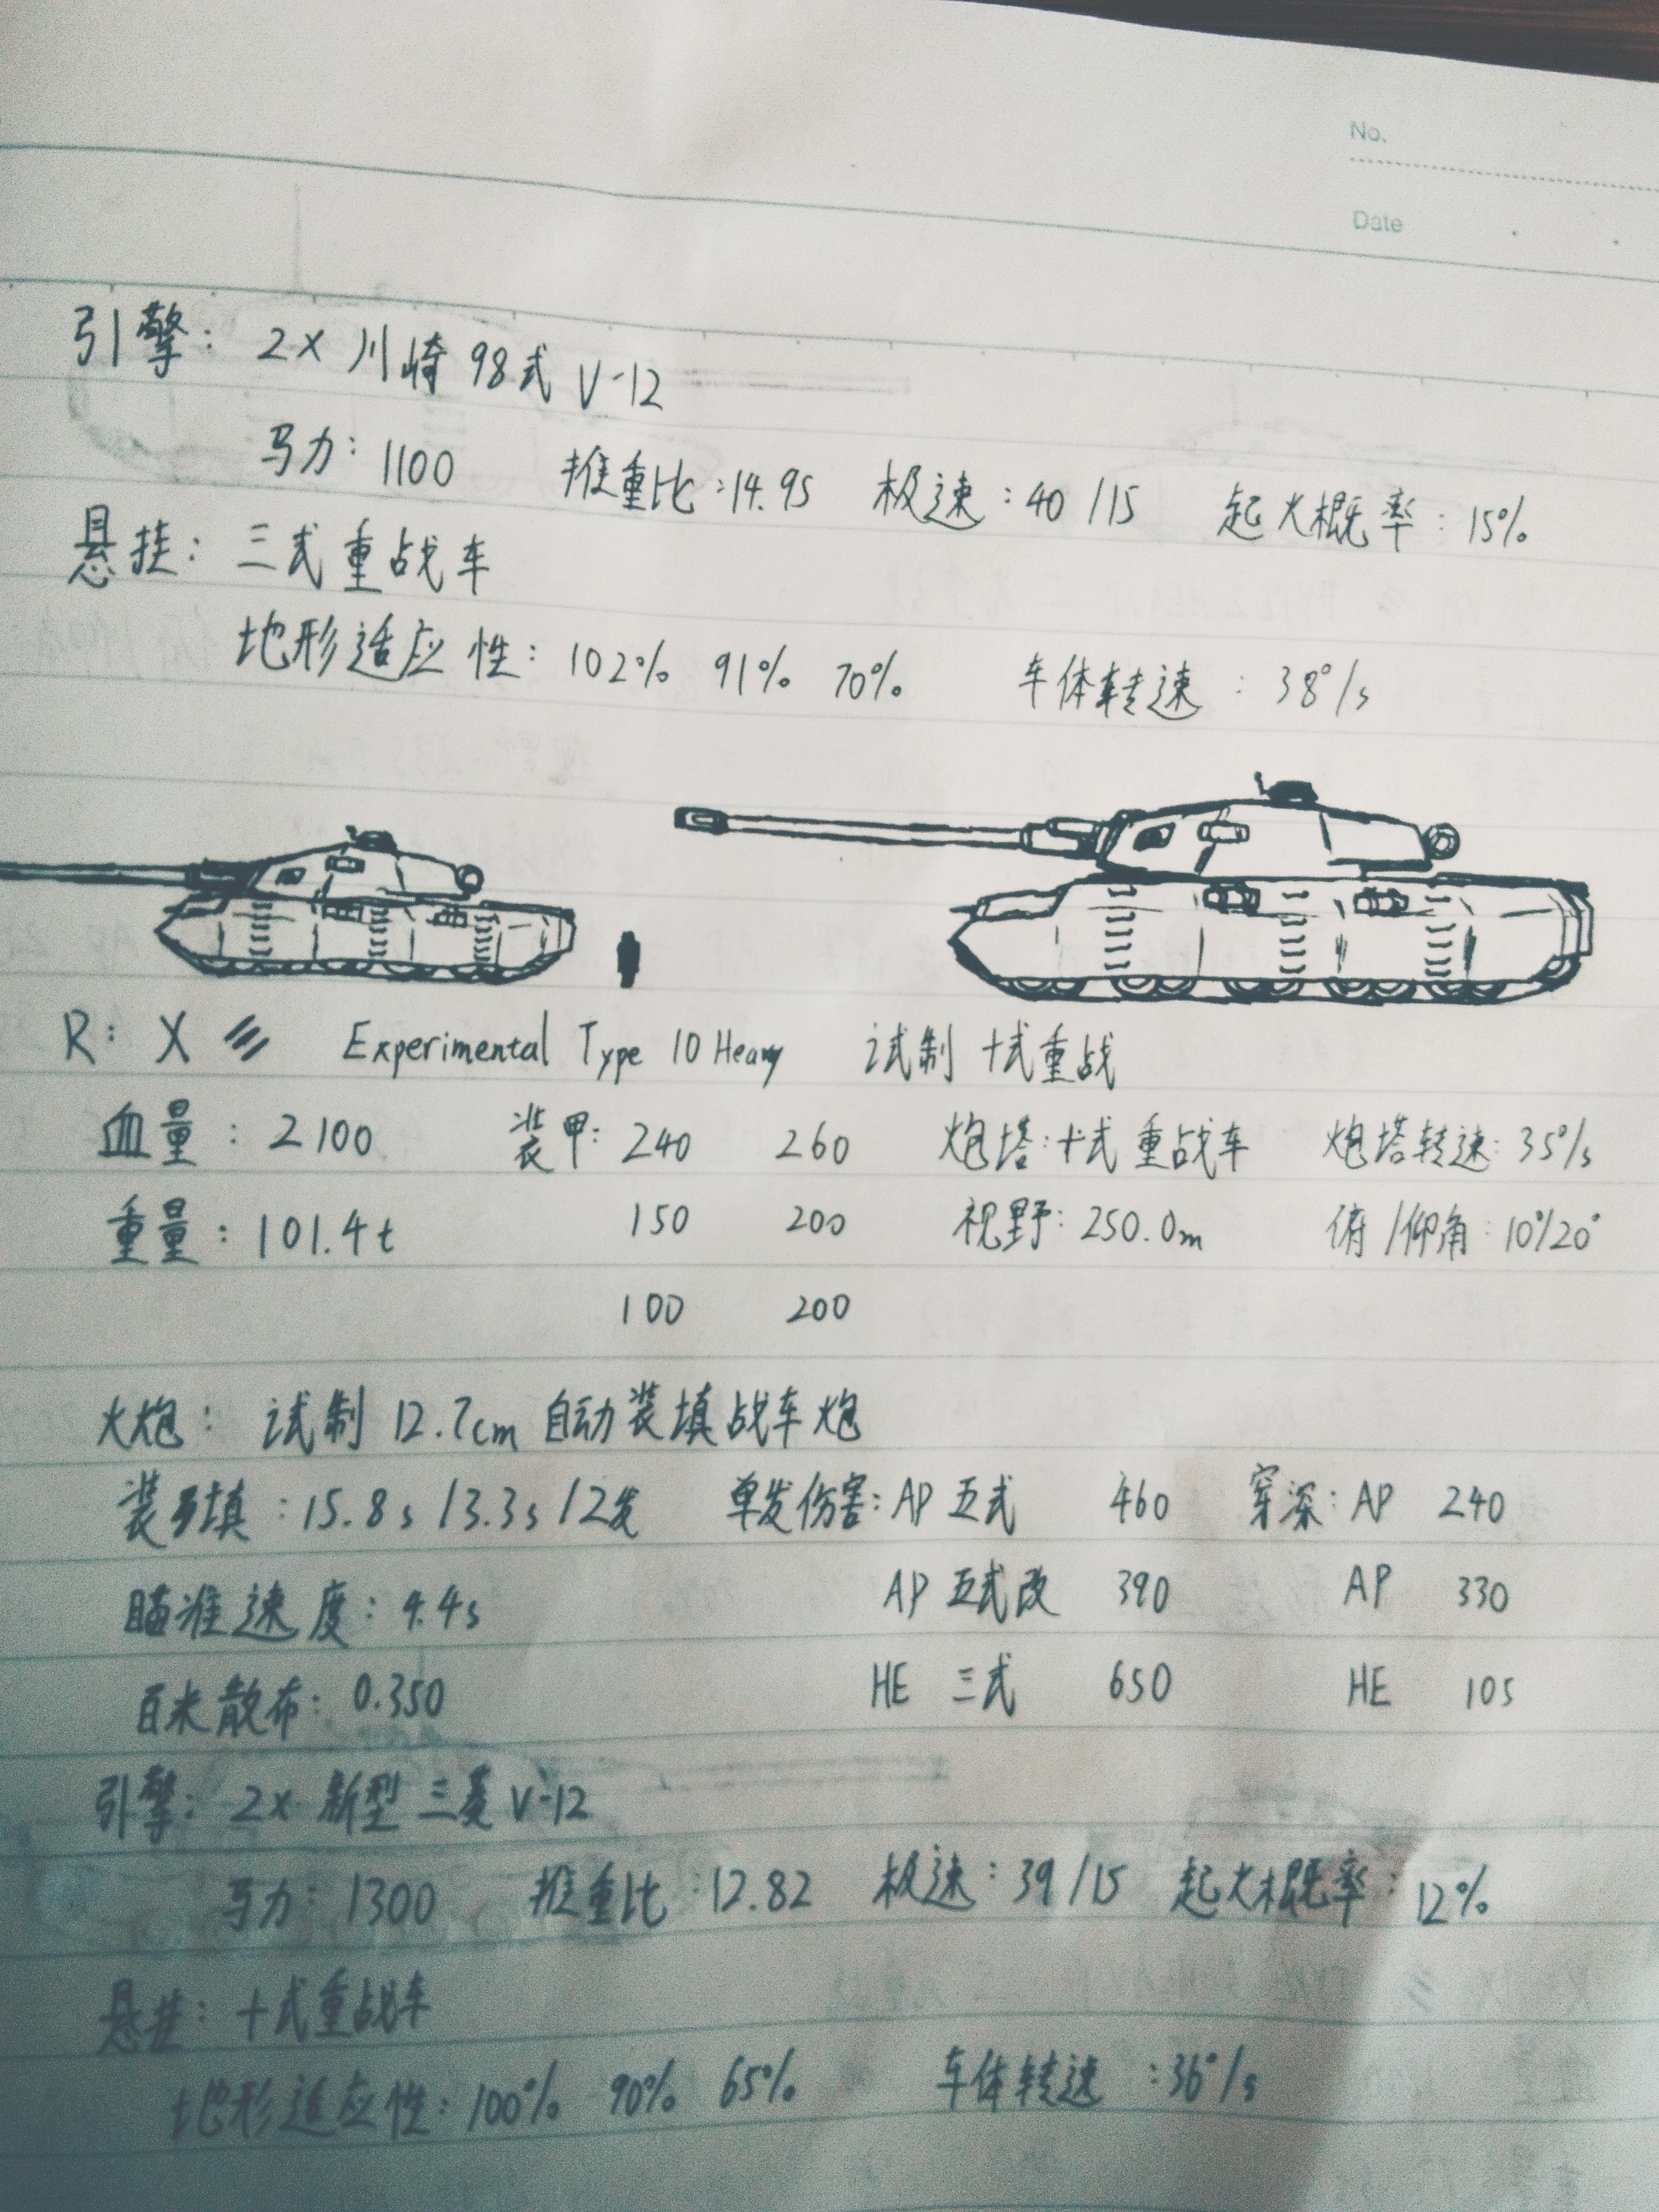 No.
Date
引擎：2X 川崎 98式 V-12
马力：1100 推重比：14.95 极速：40/15 起火概率：15%
悬挂：三式重战车
地形适应性：102% 91% 70% 车体转速：38°/s
R：X Experimental Type 10 Heavy 试制 十式重战
血量：2100 装甲：240 260 炮塔：十式重战车 炮塔转速：35°/s
重量：101.4t 150 200 视野：250.0m 俯/仰角：10°/20°
100 200
火炮：试制 12.7cm 自动装填战车炮
装填：15.8s /3.3s /2发 单发伤害：AP 五式 460 穿深：AP 240
瞄准速度：4.4s AP 五式改 390 AP 330
百米散布：0.350 HE 三式 650 HE 105
引擎：2X 新型 三菱 V-12
马力：1300 推重比：12.82 极速：39/15 起火概率：12%
悬挂：十式重战车
地形适应性：100% 90% 65% 车体转速：36°/s